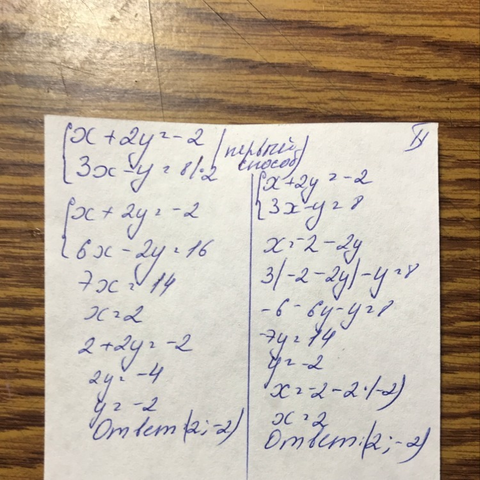 {x + 2y = -2
{3x - y = 8 |·2
(первый
способ)
{x + 2y = -2
{6x - 2y = 16
7x = 14
x = 2
2 + 2y = -2
2y = -4
y = -2
Ответ: (2; -2)
{x + 2y = -2
{3x - y = 8
x = -2 - 2y
3(-2 - 2y) - y = 8
-6 - 6y - y = 8
-7y = 14
y = -2
x = -2 - 2·(-2)
x = 2
Ответ: (2; -2)